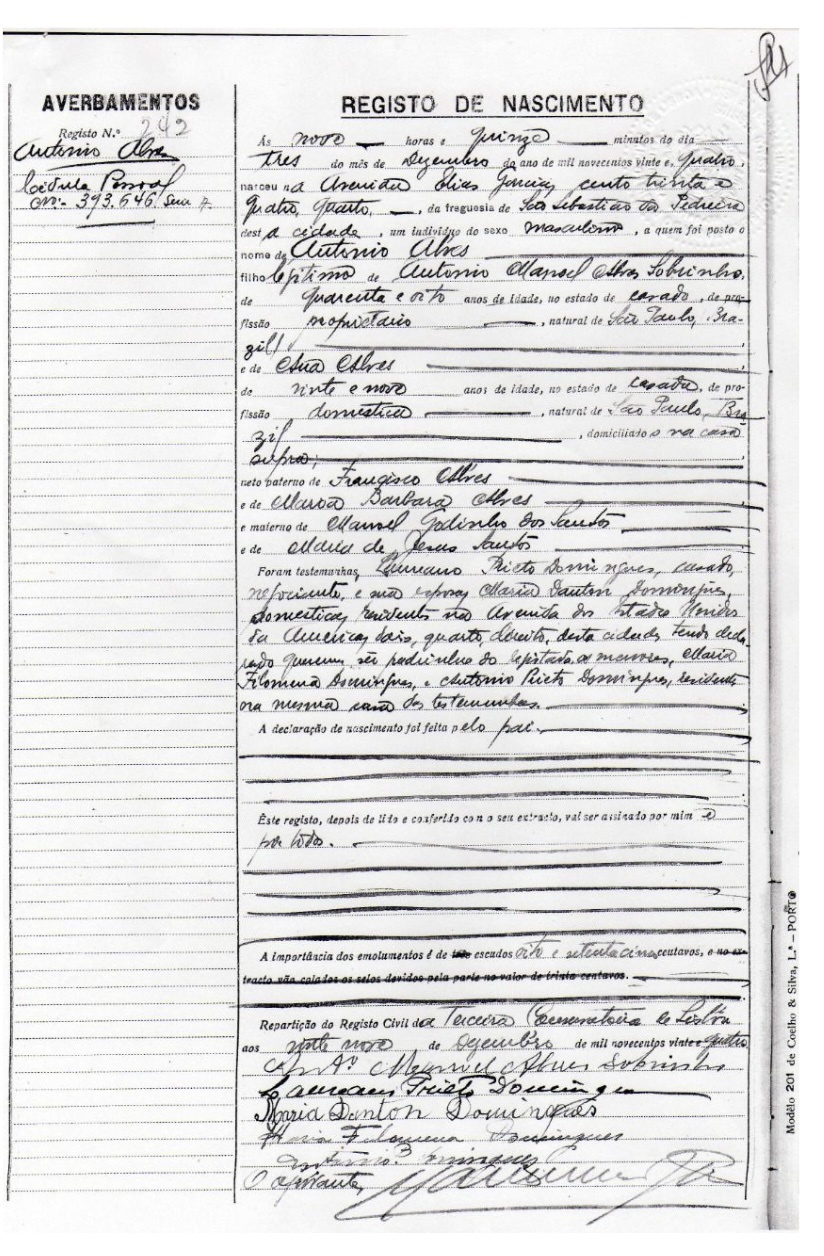 AVERBAMENTOS
Registo N.º 242
Antonio Alves
Cédula Pessoal
Nº 393.646
REGISTO DE NASCIMENTO
Ás nove horas e quinze minutos do dia
tres do mês de Dezembro do ano de mil novecentos vinte e quatro,
nasceu na Avenida Elias Garcia, cento trinta e
quatro, quarto, da freguesia de São Sebastião da Pedreira
desta cidade, um indivíduo do sexo masculino, a quem foi posto o
nome de Antonio Alves
filho legitimo de Antonio Manoel Alves Sobrinho,
de quarenta e oito anos de idade, no estado de casado, de pro-
fissão proprietario, natural de São Paulo, Bra-
zil
e de Ana Alves
de vinte e nove anos de idade, no estado de casada, de pro-
fissão domestica, natural de São Paulo, Bra
zil, domiciliados na casa
supra;
neto paterno de Francisco Alves
e de Maria Barbara Alves
e materno de Manoel Godinho dos Santos
e de Maria de Jesus Santos
Foram testemunhas, Laureano Prieto Domingues, casado,
negociante, e sua esposa Maria Danton Domingues,
domestica, residentes na Avenida dos Estados Unidos
da America, dois, quarto, direito, desta cidade, tendo decla
rado querem ser padrinhos do registado os menores, Maria
Filomena Domingues, e Antonio Prieto Domingues, residentes
na mesma casa das testemunhas.
A declaração de nascimento foi feita pelo pai.
Este registo, depois de lido e conferido com o seu extracto, vai ser assinado por mim e
por todos.
A importância dos emolumentos é de escudos oito e setenta cinco centavos, e no ex-
tracto vão colados os selos devidos pela parte no valor de trinta centavos.
Repartição do Registo Civil da Terceira Conservatoria de Lisboa
aos vinte nove de Dezembro de mil novecentos vinte e quatro
Antº Manoel Alves Sobrinho
Laureano Prieto Domingues
Maria Danton Domingues
Maria Filomena Domingues
Antonio P. Domingues
O ajudante,
Modêlo 201 de Coelho & Silva, L.ª – PORTO